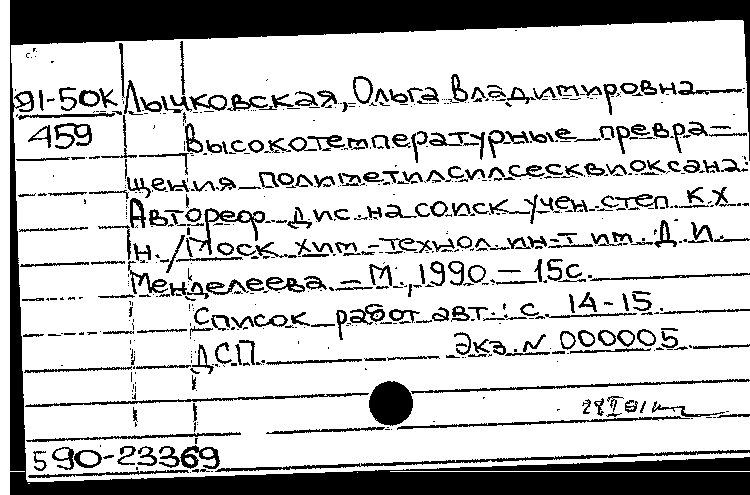 91-50К Лычковская, Ольга Владимировна
459 Высокотемпературные превра-
щения полиметилсилсесквиоксана:
Автореф. дис. на соиск. учен. степ. к.х.
н. / Моск. хим.-технол. ин-т им. Д.И.
Менделеева. - М., 1990. - 15 с.
Список работ авт.: с. 14-15.
ДСП. Экз. N 000005.
590-23369